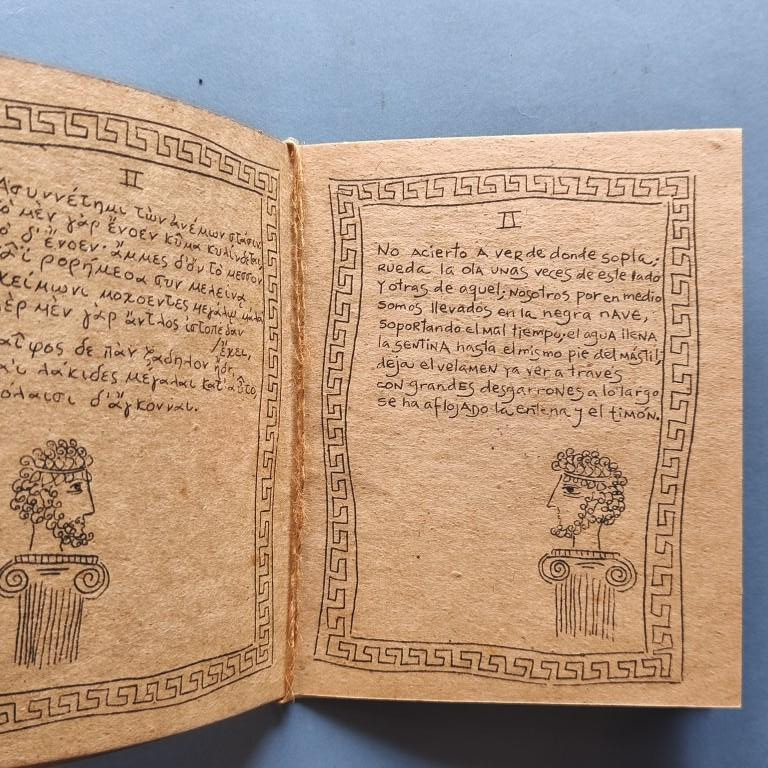 II
Ασυννέτημι τῶν ἀνέμων στάσιν
τὸ μὲν γὰρ ἔνθεν κῦμα κυλίνδεται,
τὸ δ' ἔνθεν· ἄμμες δ' ὂν τὸ μέσσον
μελαίνα
χείμωνι μοχθεντες μεγάλω μάλα
πὲρ μὲν γὰρ ἄντλος ἰστοπέδαν
/ἔχει,
λαῖφος δὲ πὰν ζάδηλον ἤδη,
λάκιδες μέγαλαι κατ' αὖτο,
χόλαισι δ' ἄγκονναι.
II
No acierto A ver de donde sopla;
rueda la ola unas veces de este lado
y otras de aquel; nosotros por en medio
somos llevados en la negra nave,
soportando el mal tiempo; el agua llena
la sentina hasta el mismo pie del mástil,
deja el velamen ya ver a través
con grandes desgarrones a lo largo
se ha aflojado la entena y el timón.